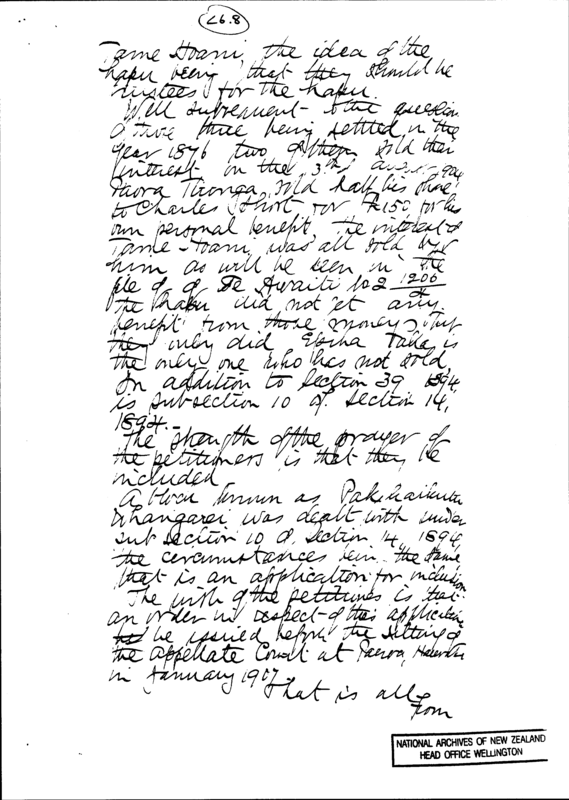 L6.8
Tame Hoani, the idea of the
hapu being that they should be
trustees for the hapu.
Well subsequent to the question
of these three being settled in the
year 1896 two of them sold their
interest on the 3rd
Paora Tironga sold half his share
to Charles Short for £150 for his
own personal benefit, the interest of
Tame Hoani was all sold by
him as will be seen in the
file of Te Awaiti No 2 1206
The hapu did not get any
benefit from those moneys, but
they only did is
the only one who has not sold.
In addition to Section 39 1894
is subsection 10 of Section 14,
1894.-
The strength of the prayer of
the petitioners is that they be
included
A block known as
Whangarei was dealt with under
sub section 10 of Section 14, 1894,
the circumstances being the same
that is an application for inclusion
The wish of the petitioners is that
an order in respect of this application
be issued before the sitting of
the Appellate Court at Paeroa, Hauraki
in January 1907.
That is all
from
NATIONAL ARCHIVES OF NEW ZEALAND
HEAD OFFICE WELLINGTON